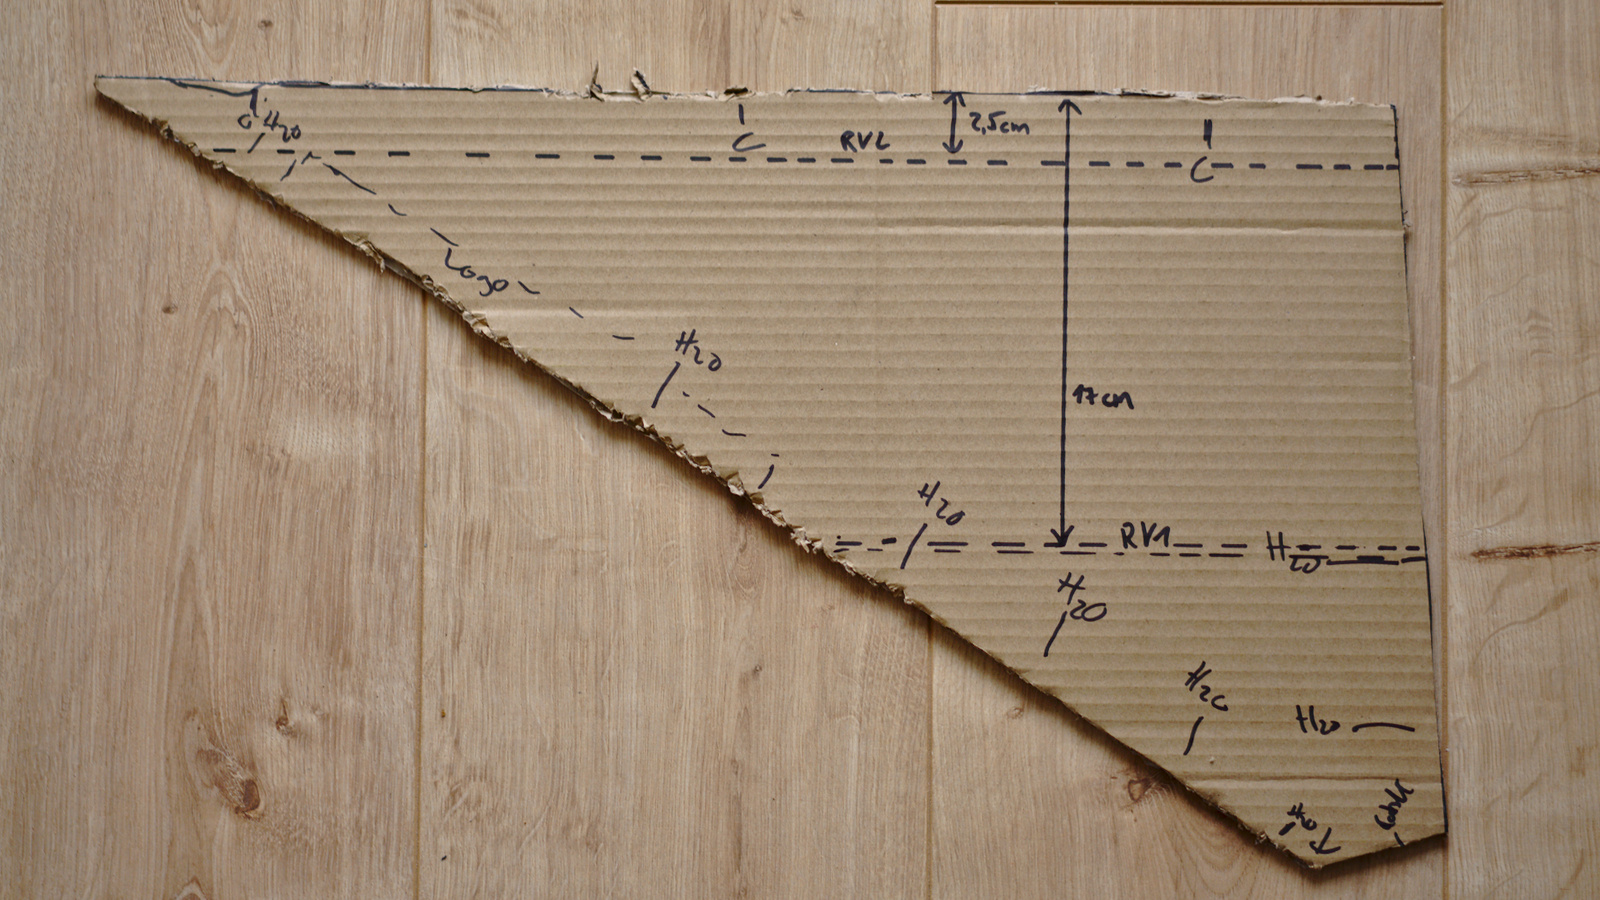 H20
C
RV2
2,5cm
C
Logo
H20
17cm
H20
RV1
H20
H20
H20
H20
H20